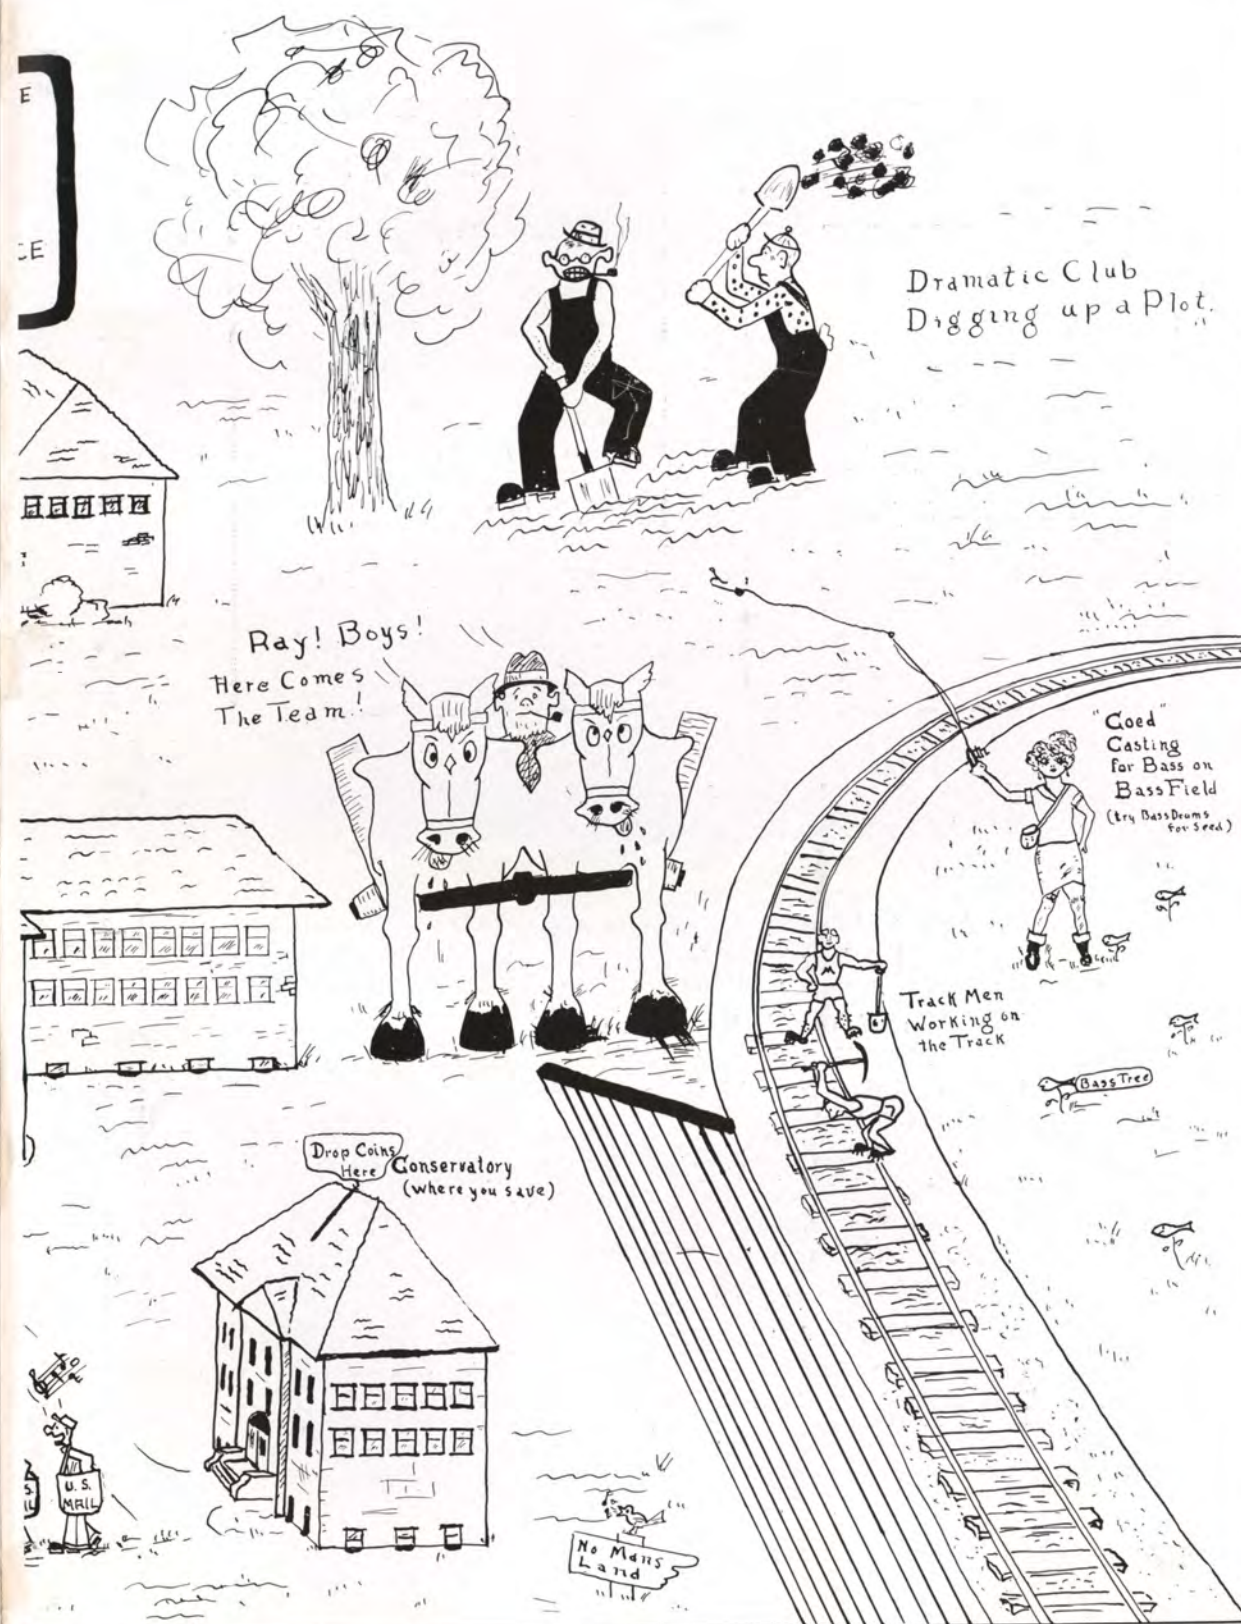 E
CE
Dramatic Club
Digging up a Plot.
Ray! Boys!
Here Comes
The Team!
"Coed"
Casting
for Bass on
Bass Field
(try Bass Drums
for Seed)
M
Track Men
Working on
the Track
Bass Tree
Drop Coins
Here
Conservatory
(where you save)
S.
IL
U.S.
MAIL
No Mans
Land